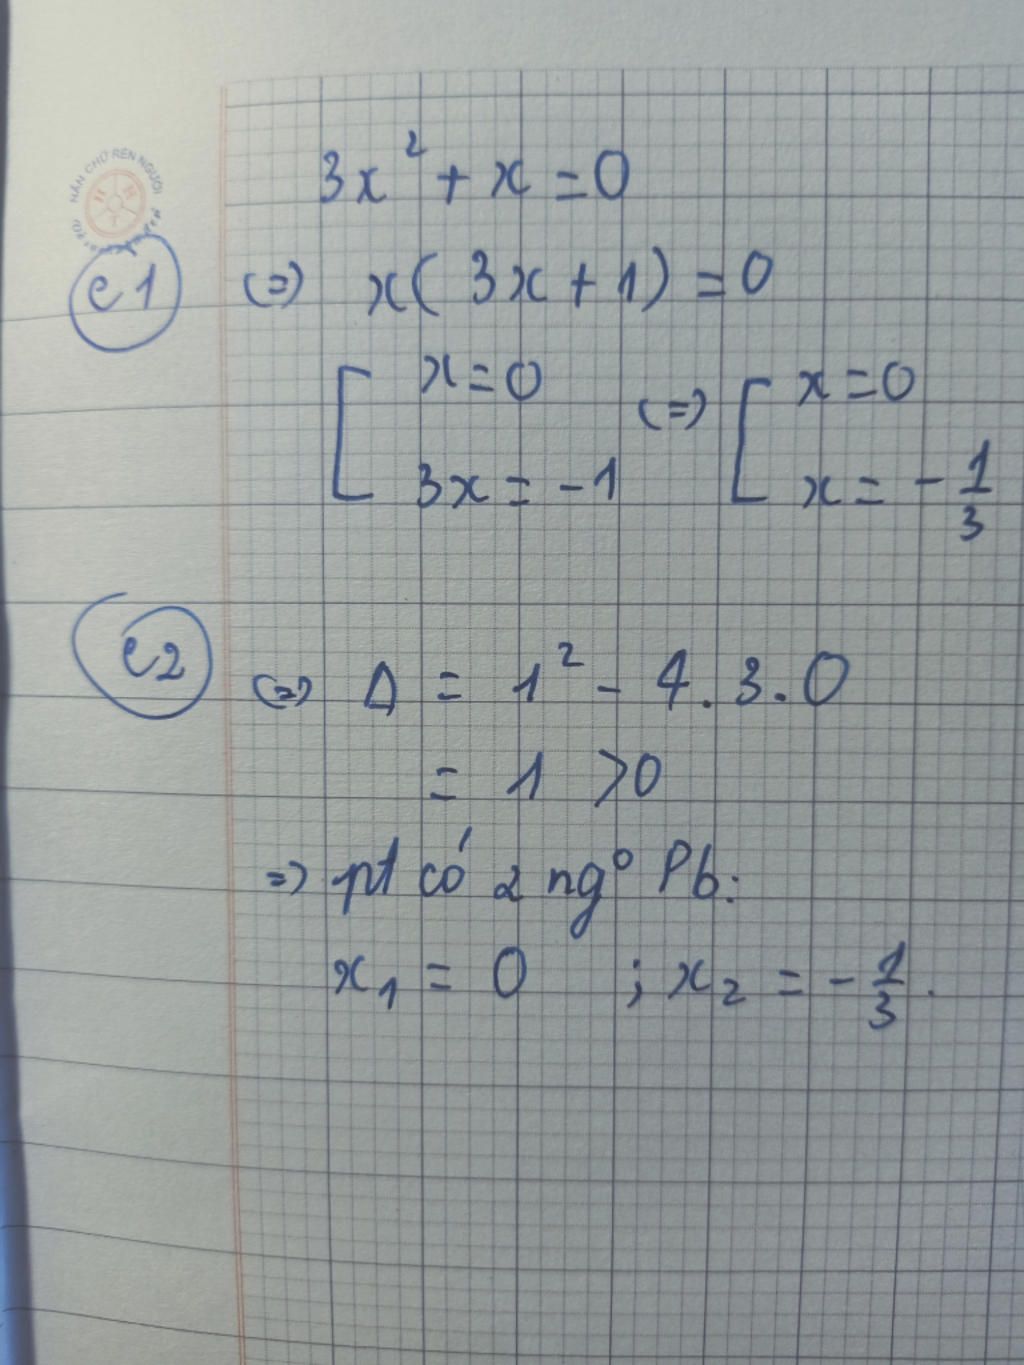 NẮN CHỮ RÈN NGƯỜI
3x² + x = 0
c1 (=) x( 3x + 1) = 0
[ x = 0 (=) [ x = 0
3x = -1 x = - 1/3
c2 (=) Δ = 1² - 4 . 3 . 0
= 1 > 0
=) pt có 2 ngº Pb:
x₁ = 0 ; x₂ = - 1/3 .